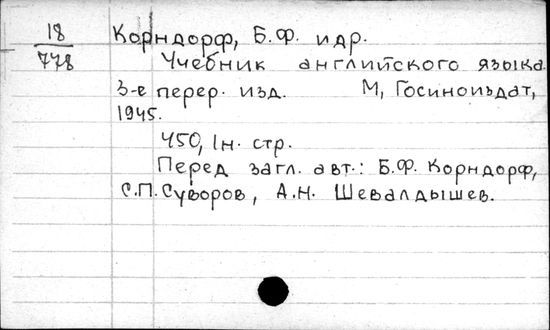 18
778
Корндорф, Б.Ф. и др.
Учебник английского языка.
3-е перер. изд. М, Госиноиздат,
1945.
450, 1н. стр.
Перед загл. авт.: Б.Ф. Корндорф,
С.П. Суворов, А.Н. Шевалдышев.